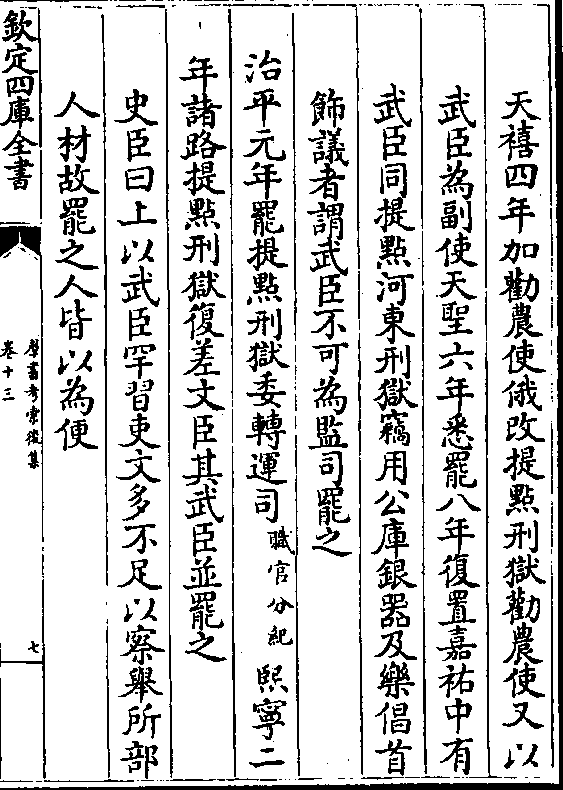 天禧四年加勸農使俄改提點刑獄勸農使又以
武臣為副使天聖六年悉罷八年復置嘉祐中有
武臣同提點河東刑獄竊用公庫銀器及樂倡首
飾議者謂武臣不可為監司罷之
治平元年罷提點刑獄委轉運司職官分紀熙寧二
年諸路提點刑獄復差文臣其武臣並罷之
史臣曰上以武臣罕習吏文多不足以察舉所部
人材故罷之人皆以為便
欽定四庫全書
羣書考索後集
卷十三
七